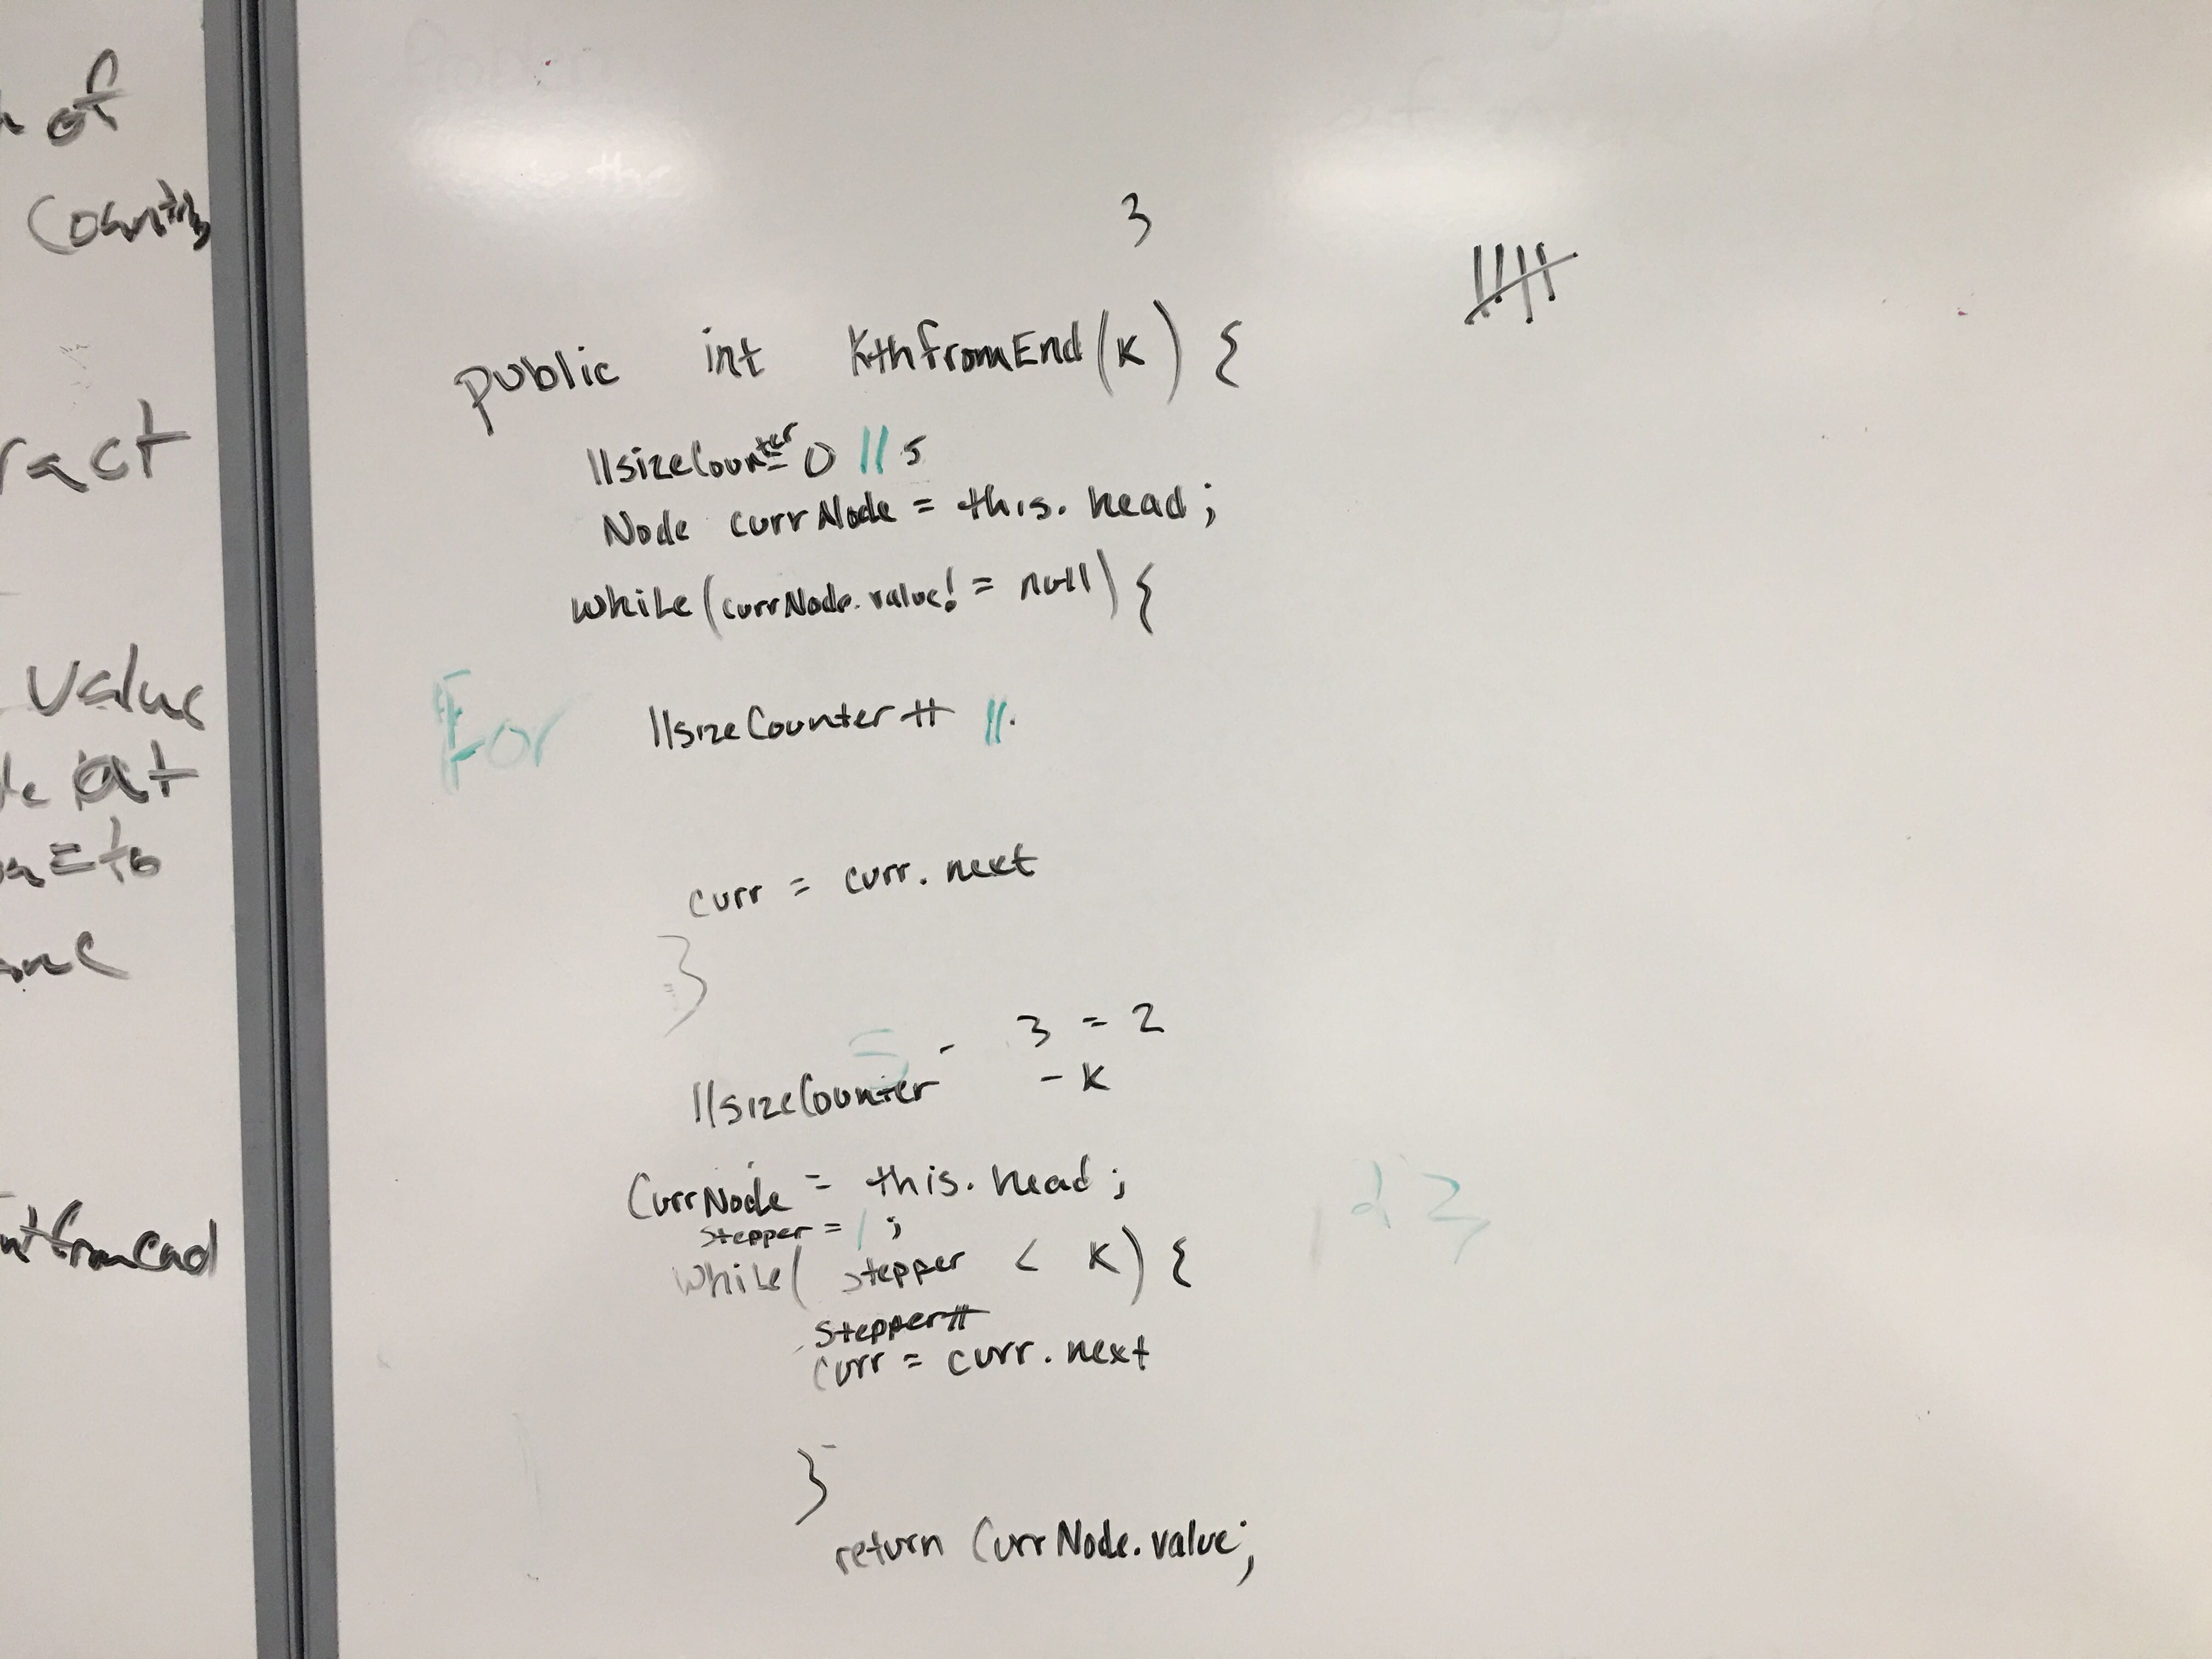 of
ract
value
at
3
public int KthfromEnd(K) {
llsizeCounter = 0 // 5
Node currNode = this.head;
while(currNode.value != null) {
For
llsizeCounter ++ //.
curr = curr.next
}
5 - 3 = 2
llsizeCounter - K
CurrNode = this.head;
stepper = 1;
while( stepper < K) {
stepper++
curr = curr.next
}
return CurrNode.value;